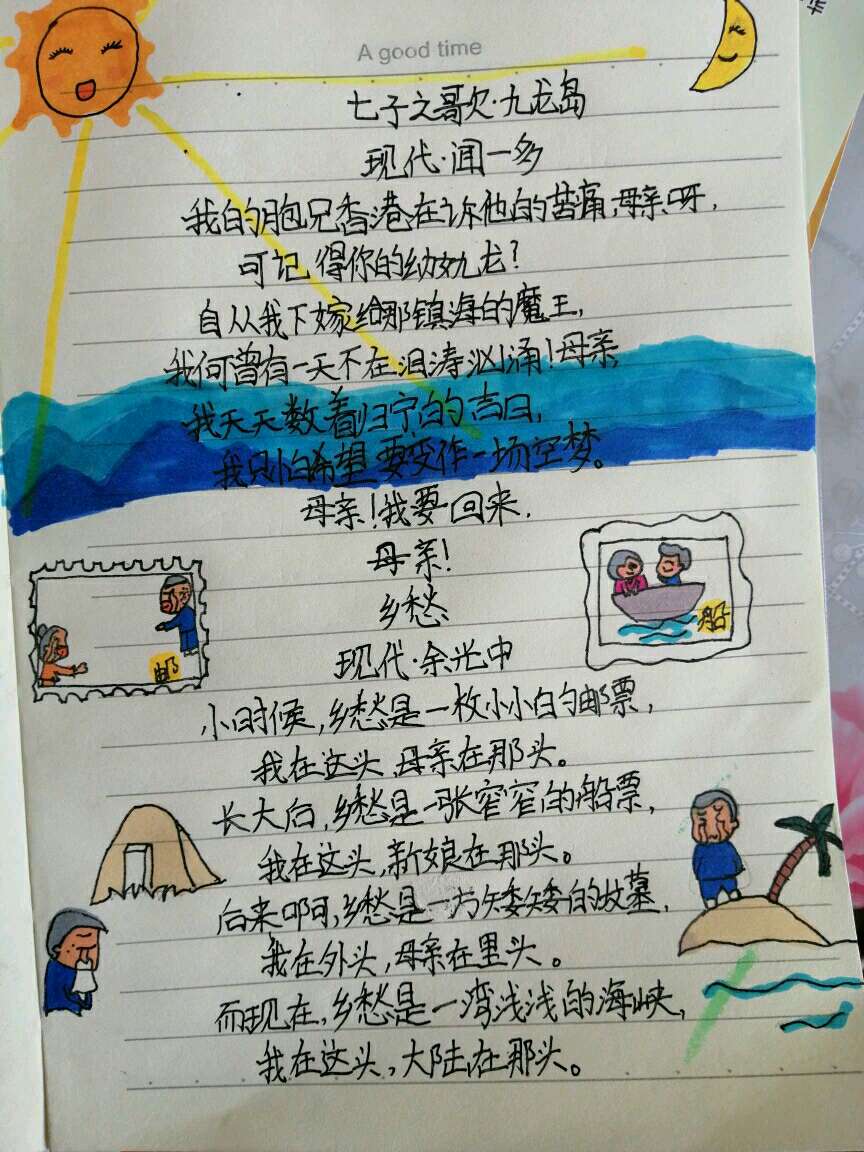 A good time
七子之歌·九龙岛
现代·闻一多
我的胞兄香港在诉他的苦痛,母亲呀,
可记得你的幼女九龙?
自从我下嫁给那镇海的魔王,
我何曾有一天不在泪涛汹涌!母亲,
我天天数着归宁的吉日,
我只怕希望要变作一场空梦。
母亲!我要回来,
母亲!
乡愁
现代·余光中
船
邮
小时候,乡愁是一枚小小的邮票,
我在这头,母亲在那头。
长大后,乡愁是一张窄窄的船票,
我在这头,新娘在那头。
后来啊,乡愁是一方矮矮的坟墓,
我在外头,母亲在里头。
而现在,乡愁是一湾浅浅的海峡,
我在这头,大陆在那头。